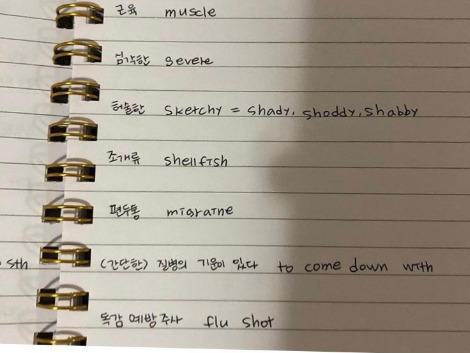 근육 muscle
심각한 severe
허술한 sketchy = shady, shoddy, shabby
조개류 shellfish
편두통 migraine
sth (간단한) 질병의 기운이 있다 to come down with
독감 예방 주사 flu shot